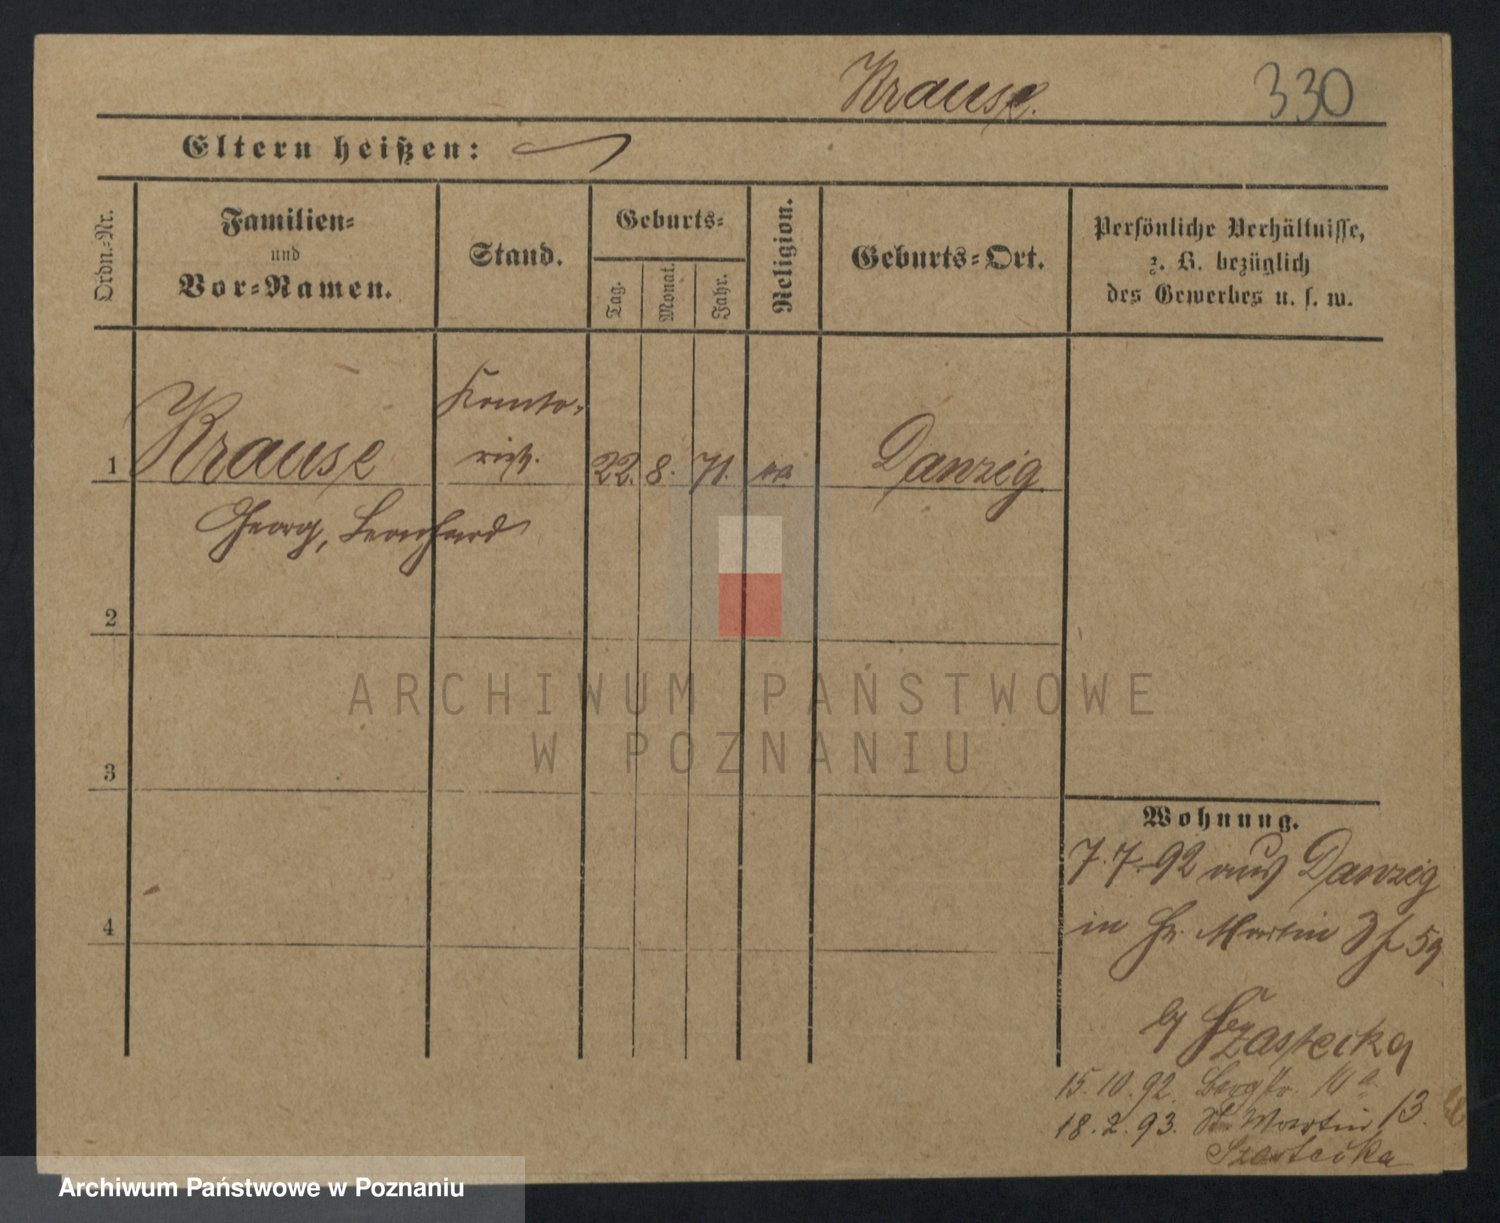 Krause.
330
Eltern heißen:
Ordn.-Nr.
Familien-
und
Vor-Namen.
Stand.
Geburts-
Tag.
Monat.
Jahr.
Religion.
Geburts-Ort.
Persönliche Verhältnisse,
z. B. bezüglich
des Gewerbes u. s. w.
1
Krause
Georg, Leonhard
Komto-
rist.
22. 8. 71.
Danzig
2
3
4
ARCHIWUM PAŃSTWOWE
W POZNANIU
Wohnung.
7.7.92 aus Danzig
in St. Martin
15.10.92. Bergstr.
18.2.93. St. Martin 13.
Archiwum Państwowe w Poznaniu